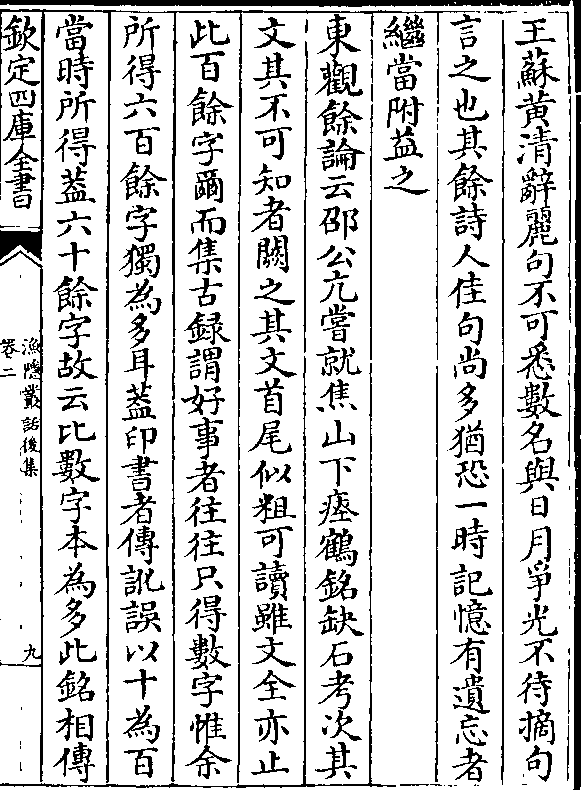 王蘇黄清辭麗句不可悉數名與日月爭光不待摘句
言之也其餘詩人佳句尚多猶恐一時記憶有遺忘者
繼當附益之
東觀餘論云邵公亢嘗就焦山下瘞鶴銘缺石考次其
文其不可知者闕之其文首尾似粗可讀雖文全亦止
此百餘字爾而集古録謂好事者往往只得數字惟余
所得六百餘字獨為多耳葢印書者傳訛誤以十為百
當時所得葢六十餘字故云比數字本為多此銘相傳
欽定四庫全書
漁隱叢話後集
卷二
九